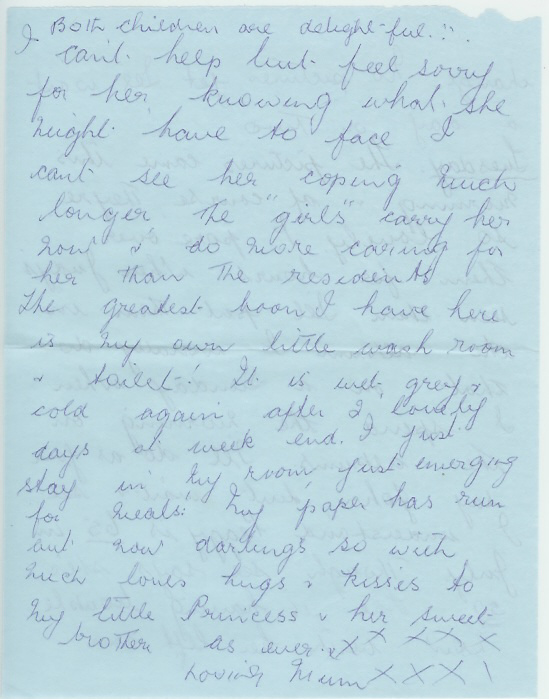 & BOTH children are delight-ful.!!
can't help but feel sorry
for her knowing what she
might have to face I
can't see her coping much
longer the "girls" carry her
now & do more caring for
her than the residents
The greatest boon I have here
is my own little wash room
& toilet! It is wet, grey &
cold again after 2 lovely
days at week end. I just
stay in my room just emerging
for meals! My paper has run
out now darlings so with
much loves hugs & kisses to
my little Princess & her sweet
brother as ever. X X X X X
Loving Mum X X X X !